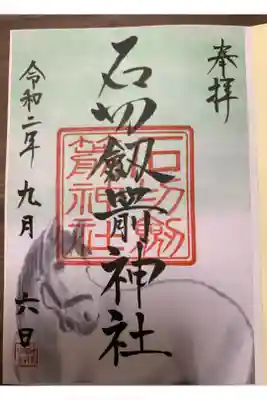 奉拝
石切劔箭神社
石切劔
箭神社
令和二年九月六日